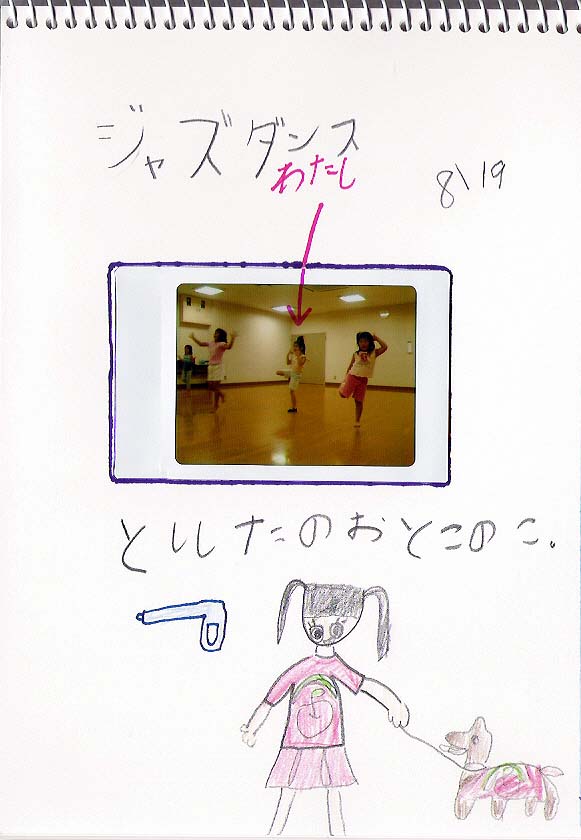 ジャズダンス
わたし
8\19
とししたのおとこのこ.